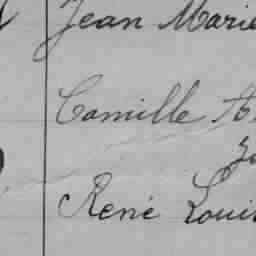 Jean Marie
Camille
René Loui